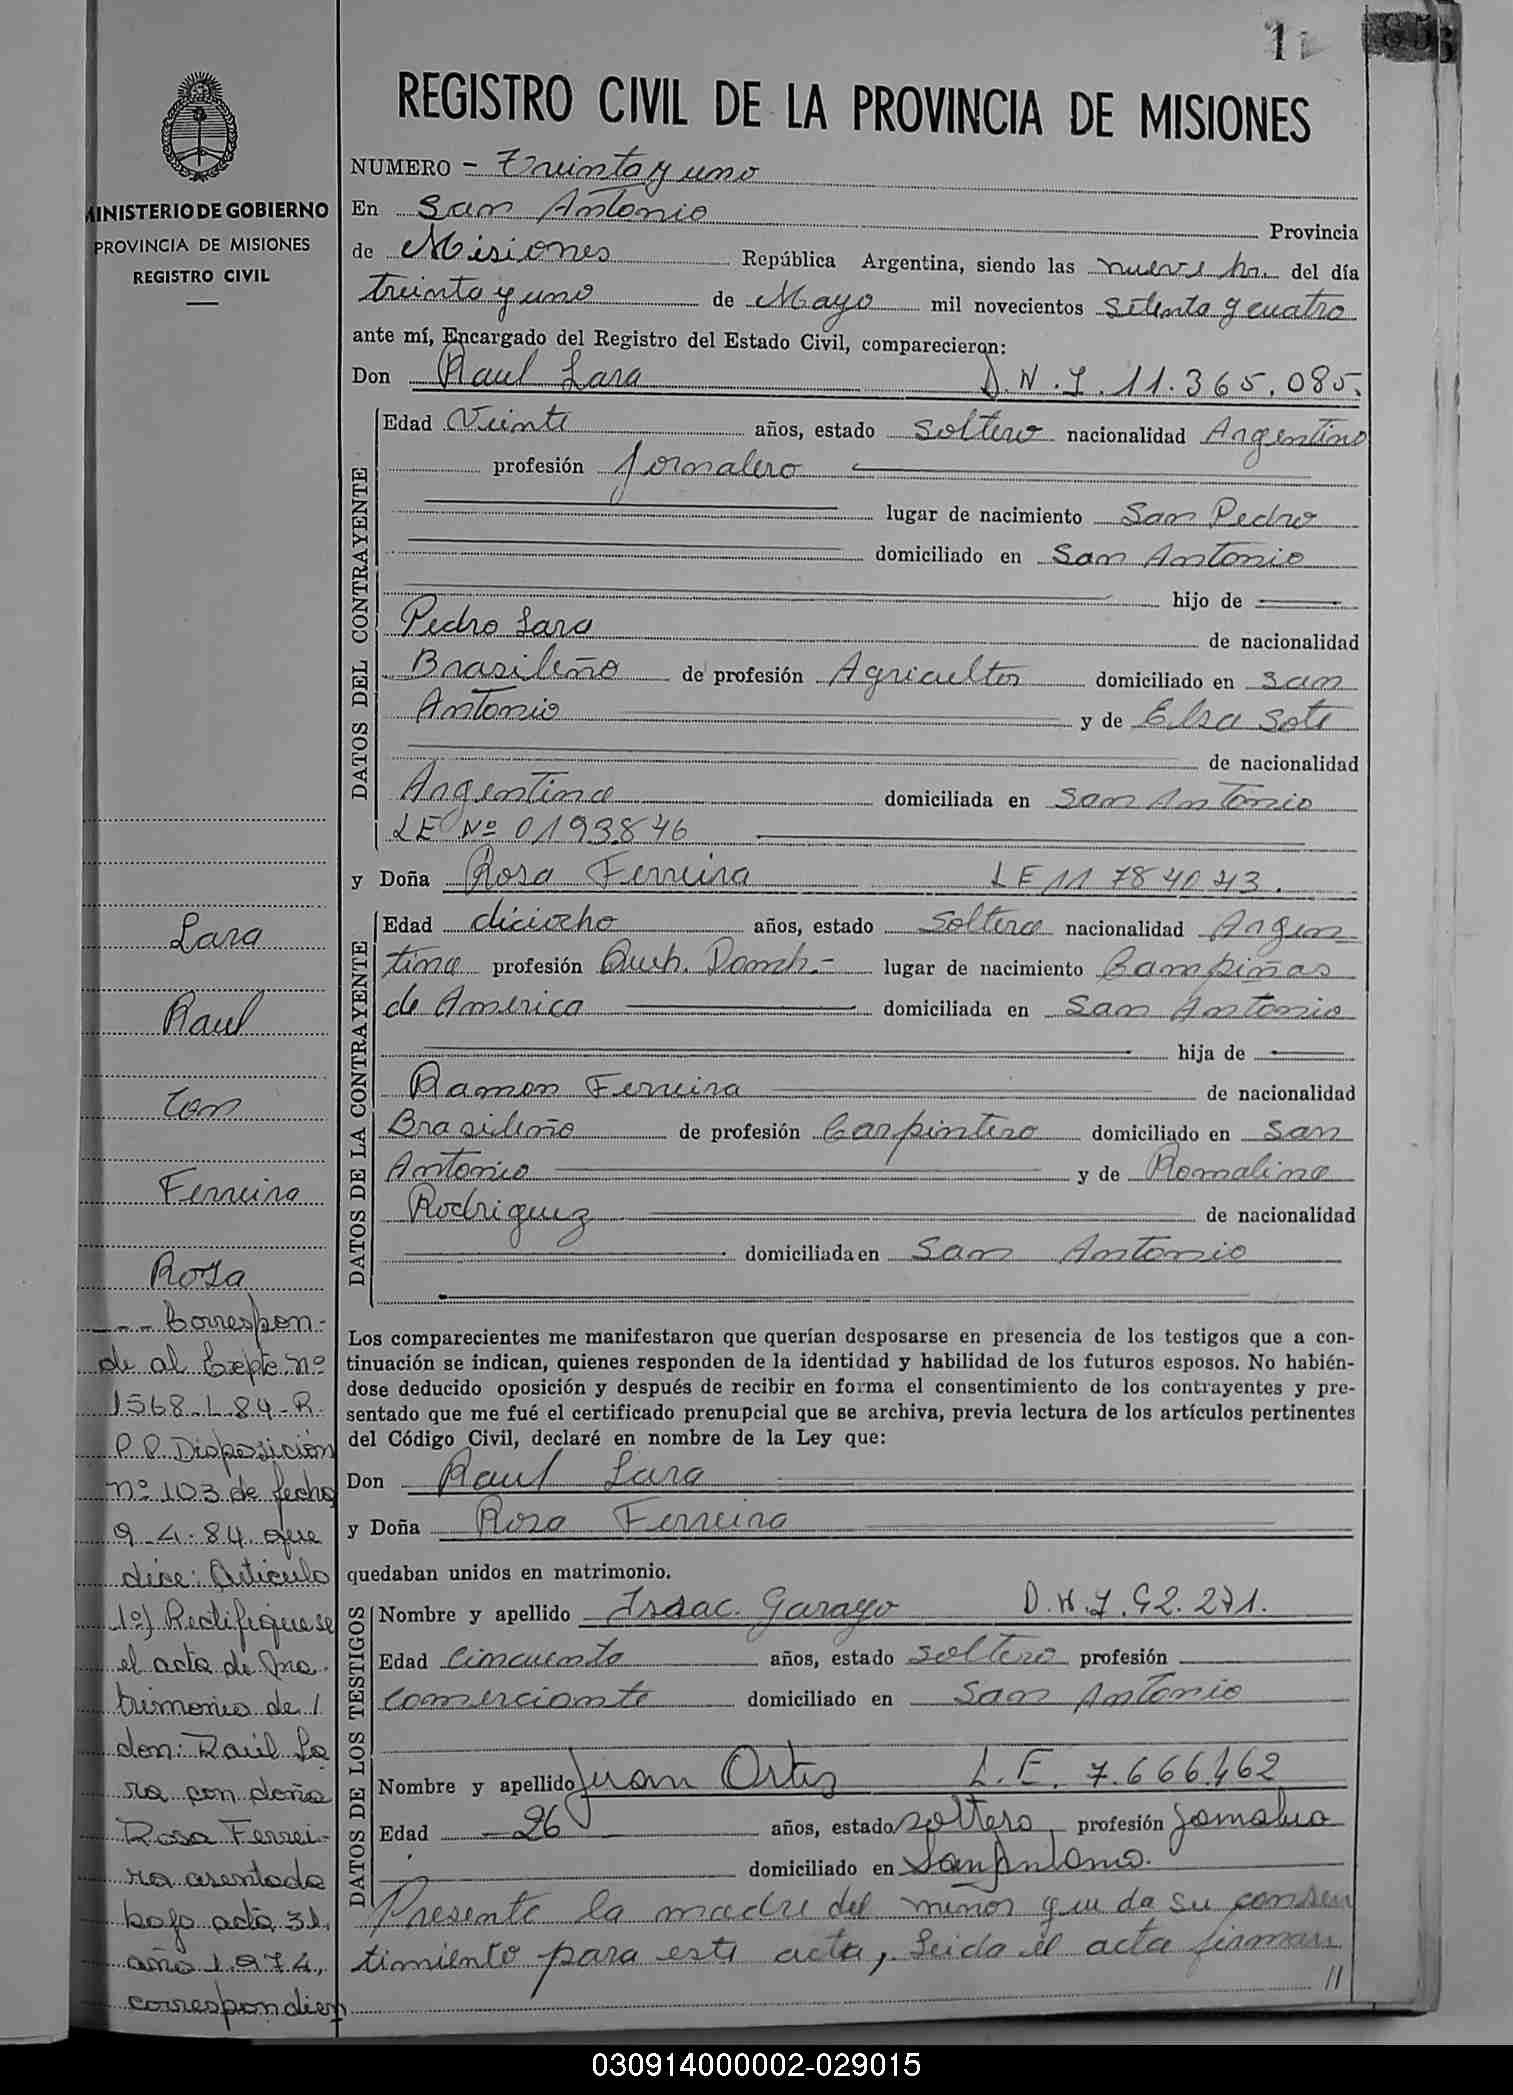 1
REGISTRO CIVIL DE LA PROVINCIA DE MISIONES
MINISTERIO DE GOBIERNO
PROVINCIA DE MISIONES
REGISTRO CIVIL
NUMERO - Treinta y uno
En San Antonio Provincia
de Misiones República Argentina, siendo las nueve hs. del día
treinta y uno de Mayo mil novecientos setenta y cuatro
ante mí, Encargado del Registro del Estado Civil, comparecieron:
Don Raul Lara D.N.I. 11.365.085.
DATOS DEL CONTRAYENTE
Edad Veinte años, estado soltero nacionalidad Argentino
profesión Jornalero
lugar de nacimiento San Pedro
domiciliado en San Antonio
hijo de
Pedro Lara de nacionalidad
Brasileño de profesión Agricultor domiciliado en San
Antonio y de Elsa Sote
de nacionalidad
Argentina domiciliada en San Antonio
LE Nº 0193846
y Doña Rosa Ferreira LE 11 784043.
DATOS DE LA CONTRAYENTE
Edad diciocho años, estado Soltera nacionalidad Argen
tina profesión Queh. Domch.- lugar de nacimiento Campiñas
de America domiciliada en San Antonio
hija de
Ramon Ferreira de nacionalidad
Brasileño de profesión Carpintero domiciliado en San
Antonio y de Romalina
Rodriguez de nacionalidad
domiciliada en San Antonio
Los comparecientes me manifestaron que querían desposarse en presencia de los testigos que a con-
tinuación se indican, quienes responden de la identidad y habilidad de los futuros esposos. No habién-
dose deducido oposición y después de recibir en forma el consentimiento de los contrayentes y pre-
sentado que me fué el certificado prenupcial que se archiva, previa lectura de los artículos pertinentes
del Código Civil, declaré en nombre de la Ley que:
Don Raul Lara
y Doña Rosa Ferreira
quedaban unidos en matrimonio.
DATOS DE LOS TESTIGOS
Nombre y apellido Isaac Garayo D.N.I. 92.271.
Edad Cincuenta años, estado soltero profesión
comerciante domiciliado en San Antonio
Nombre y apellido Juan Ortiz L.E. 7.666.462
Edad 26 años, estado soltero profesión Jornalero
domiciliado en San Antonio.
Presente la madre del menor que da su consen
timiento para este acta, Leida el acta firman
//
Lara
Raul
con
Ferreira
Rosa
--- Correspon-
de al Expte nº
1568-L-84-R.
P.P. Disposición
nº 103 de fecha
9-4-84 que
dice: Articulo
1º) Rectifiquese
el acta de ma-
trimonio de
don: Raúl La
ra con doña
Rosa Ferrei-
ra asentada
bajo acta 31,
año 1.974,
correspondien
030914000002-029015